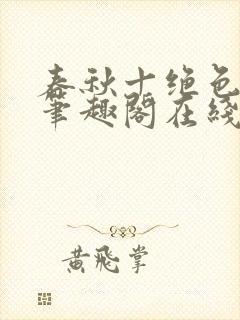 春秋十绝色
笔趣阁在线
黄飞掌